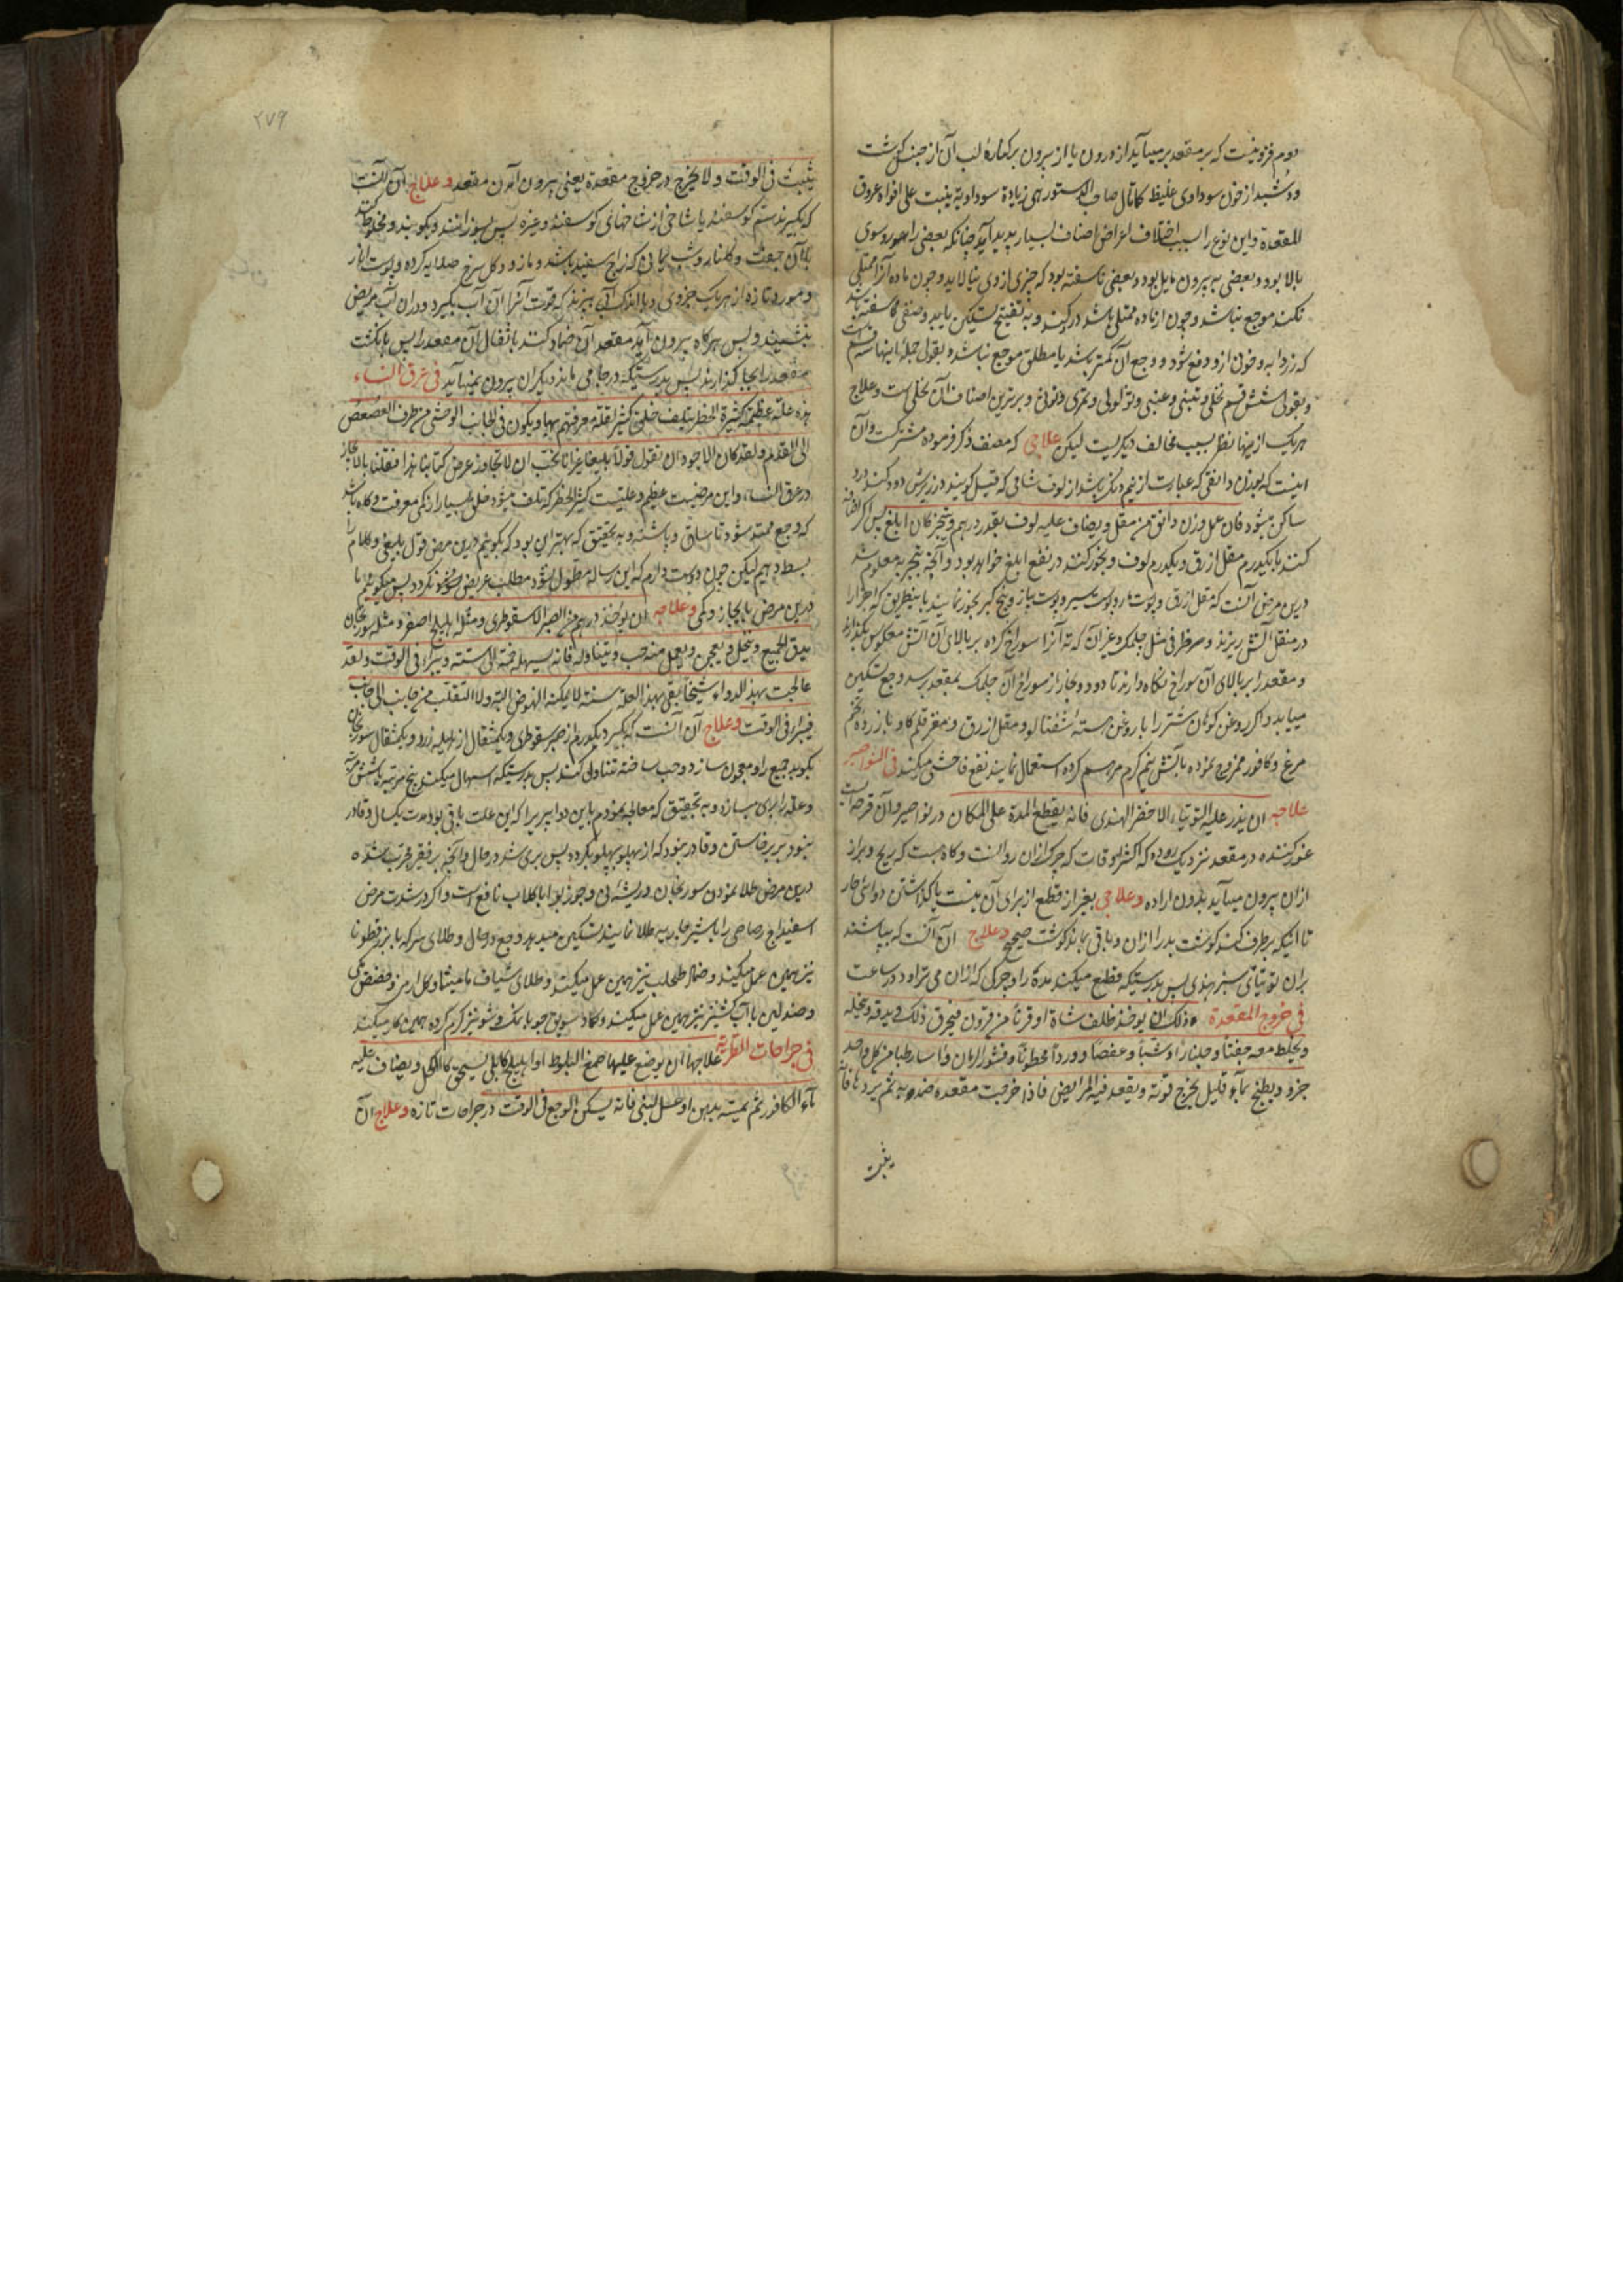 دوم فزونیست که بر مقعد برمیآید از درون یا از بیرون بر کنارهٔ لب آن از جنس گوشت
از خون سوداوی غلیظ کما قال صاحب الدستور هی زیادة سوداویة ینبت علی افواه عروق
المقعدة و این نوع را بسبب اختلاف اعراض اصناف بسیار پدید آید چنانکه بعضی را سوی
بالا بود و بعضی به بیرون مایل بود و بعضی ناسفته بود که چیزی از وی نپالاید و چون ماده آنرا ممتلی
نکند موجع نباشد و چون از ماده ممتلی باشد درد کند و به تفتیح تسکین یابد و صنفی سفته باشد
که زردابه و خونی ازو دفع شود و وجع آن کمتر باشد یا مطلق موجع نباشد بقول جمله اینها سه قسم است
و بقولی شش قسم نخلی و تینی و عنبی و ثؤلولی و تمری و توثی و بدترین اصناف آن نخلی است و علاج
هر یک ازینها نظر بسبب مخالف دیگریست لیکن علاجی که مصنف ذکر فرموده مشترکست و آن
اینست که بوزن دانقی که عبارت از نیم دنک باشد از لوف شامی که قیل گویند در زیرش دود کنند درد
ساکن میشود فان عمل وزن دانق من مقل و یضاف علیه لوف بقدر درهم و بخر کان ابلغ پس اگر اضافه
کنند با یکدرم مقل ازرق و یکدرم لوف و بخور کنند در نفع ابلغ خواهد بود و آنچه بتجربه معلوم شد
درین مرض آنست که مقل ازرق و پوست مار و پوست سیر و پوست پیاز و بیخ کبر بخور نمایند باینطریق که اجزا را
در منقل آتش ریزند و سر ظرفی مثل چلمک و غیر آن که ته آنرا سوراخ کرده بر بالای آن آتش معکوس بگذارند
و مقعد را بر بالای آن سوراخ نگاه دارند تا دود و بخار از سوراخ آن چلمک بمقعد برسد وجع تسکین
مییابد و اگر روغن کوهان شتر را با روغن هسته شفتالو و مقل ازرق و مغز قلم گاو با زرده تخم
مرغ و کافور ممزوج نموده بآتش نیم گرم مرهم کرده استعمال نمایند نفع فاحش میکند فی النواصیر
علاجه ان یذر علیه التوتیاء الاخضر الهندی فانه یقطع المدة علی المکان در نواصیر و آن قرحه ایست
غور کننده در مقعد نزدیک روده که اکثر اوقات چرک ازان روانست و گاه هست که ریح و براز
ازان بیرون میآید بدون اراده و علاجی بغیر از قطع از برای آن نیست یا گذاشتن دوائی حار
تا آنکه برطرف کند گوشت بد را ازان و باقی بماند گوشت صحیح و علاج آن آنست که بپاشند
بران توتیائی سبز هندی پس بدرستیکه قطع میکند مدة را و چرکی که ازان می تراود در ساعت
فی خروج المقعدة و ذلک ان یوخذ ظلف شاة او قرناً من قرون فیحرق ذلک و یدقه و ینخله
و یخلط معه جفتاً و جلناراً و شبّاً و عفصاً و ورداً مخطوناً و قشور الرمان و آسا رطبا من کل واحد
جزو و یطبخ بماء قلیل یخرج قوته و یقعد فیه المرایض فاذا خرجت مقعده ضمد به ثم یردها فانه
یثبت
یثبت فی الوقت و لا یخرج در خروج مقعدة یعنی بیرون آمدن مقعد و علاج آن آنست
که بگیرند سم گوسفند یا شاخی از شاخهای گوسفند و غیره پس بسوزانند و بکوبند و مخلوط کنند
با آن جفت و گلنار و شب یمانی که زاج سفید باشد و مازو و گل سرخ صلایه کرده و پوست انار
و مورد تازه از هر یک جزوی و با اندک آبی بپزند که قوت آنرا آن آب بگیرد و دران آب مریض
بنشیند و پس هرگاه بیرون آید مقعد آن ضماد کنند باثفال آن مقعد را پس بانگشت
مقعد را بجا گذارند پس بدرستیکه در جا می ماند و دیگر آن بیرون نمیآید فی عرق النساء
هذه علة عظیمة کثیرة الخطر یتلف خلق کثیر لقلة معرفتهم بها و یکون فی الجانب الوحشی من طرف العصعص
الی القدم و لقد کان الاجود ان نقول قولاً بلیغا غیر انا نحب ان لا نجاوز عرض کتابنا هذا فنقلنا بالایجاز
در عرق النسا و این مرضیست عظیم و علتیست کثیر الخطر که تلف میشود خلق بسیار از کمی معرفت و گاه باشد
که وجع ممتد شود تا ساق و پاشنه و به تحقیق که بهتر این بود که بگوئیم درین مرض قول بلیغی و کلام را
بسط دهیم لیکن چون دوست داریم که این رساله مطول نشود مطلب عریض نگردد پس میگوئیم ما
درین مرض بایجاز و کمی و علاجه ان یوخذ درهم من الصبر الاسقوطری و مثله اهلیلج اصفر و مثله سورنجان
یدق الجمیع و ینخل و یعجن و یعمل منه حب و یتناوله فانه یسهله خمسة الی الستة و یبرأ فی الوقت و لقد
عالجت بهذ الدواء شیخاً بقی بهذا العلة سنة لا یمکنه النهوض البتة و لا التقلب من جانب الی جانب
فیبرء فی الوقت و علاج آن آنست که بگیرد یکدرم از صبر سقوطری و یکمثقال از هلیله زرد و یکمثقال سورنجان
بکوبد جمیع را و معجون سازد و حب ساخته تناول کند پس بدرستیکه اسهال میکند پنج مرتبه یا شش مرتبه
و علة را بری میسازد و به تحقیق که معالجه نمودم باین دوا پیری را که این علت باقی بود مدت یکسال و قادر
نبود بر برخاستن و قادر نبود که از پهلو بپهلو بگردد پس بری شد در حال و آنچه بر فقیر مجرب شده
درین مرض طلا نمودن سورنجان و ریشه نی و جوز بوا با گلاب نافع است و اگر در شدت مرض
اسفیداج رصاصی را با شیر طلا نمایند تسکین میدهد وجع در حال و طلای سرکه با بزر قطونا
نیز همین عمل میکند و ضماد طحلب نیز همین عمل میکند و طلای شیاف مامیثا و گل ارمنی و حضض مکی
و صندلین با آب کشنیز نیز همین عمل میکند و کماد سبوس جو با نمک و شونیز گرم کرده همین کار میکند
فی جراحات الطریة علاجها ان یوضع علیها صمغ البلوط او اهلیلج کابلی یسحق کالکحل و یضاف علیه
ماء الکافور ثم یمیثه بدهن او عسل لبنی فانه یسکن الوجع فی الوقت در جراحات تازه و علاج آن
۲۷۹